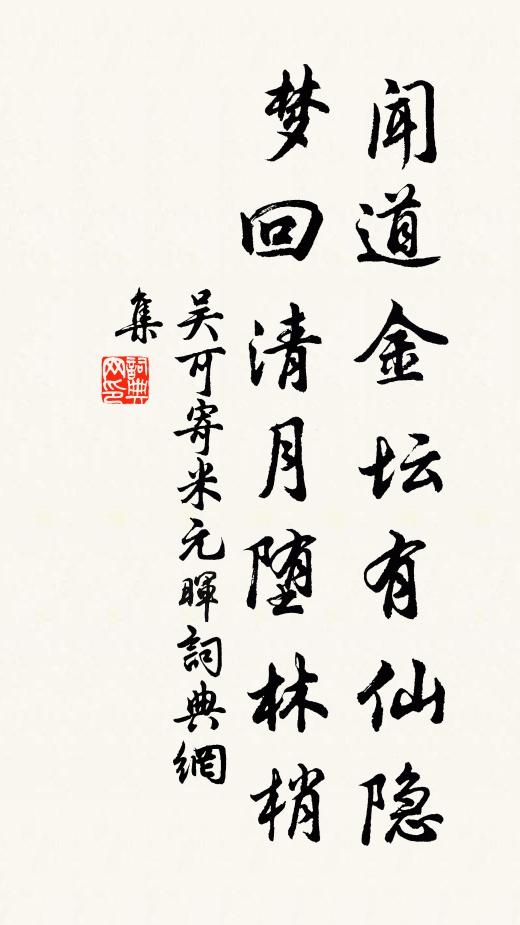 闻道金坛有仙隐
梦回清月堕林梢
吴可寄米元暉詞典網
集
詞典网印